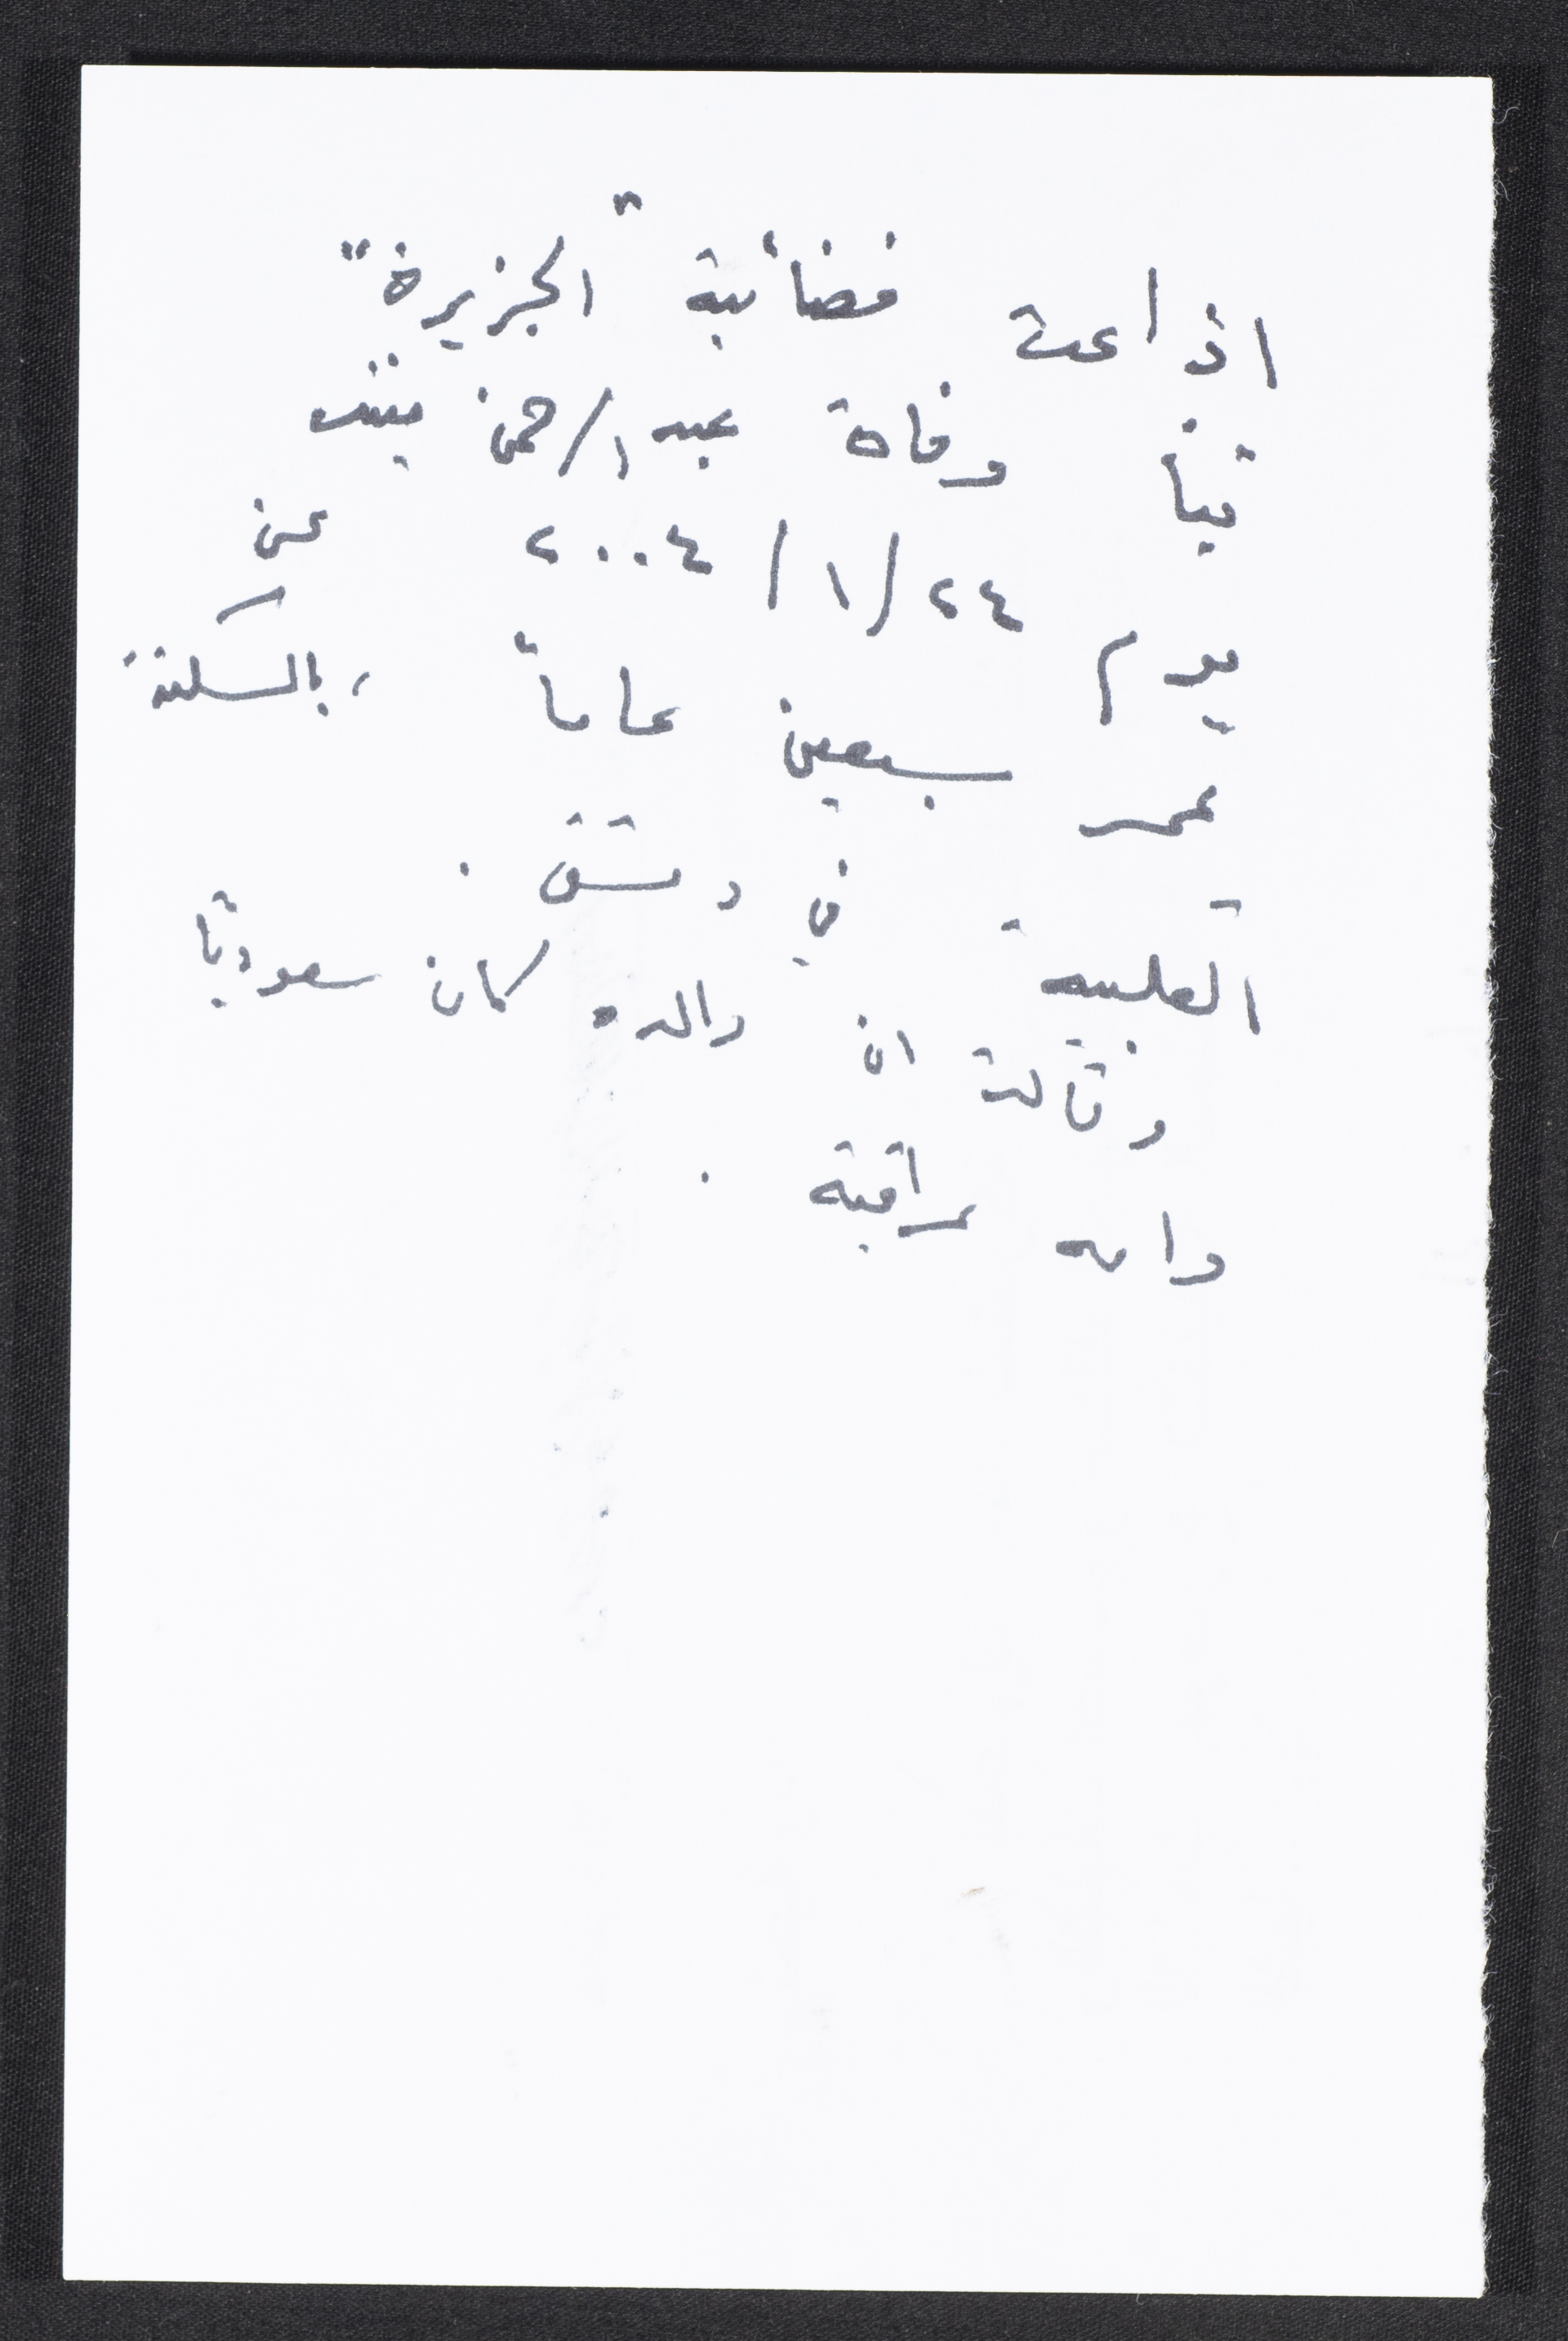 اذاعت فضائية "الجزيرة"
نبأ وفاة عبد الرحمن منيف
يوم ٢٤/١/٢٠٠٤ عن
عمر سبعين عاماً ، بالسكتة
القلبية في دمشق .
وقالت ان والده كان سعوديّا
وامه عراقية .